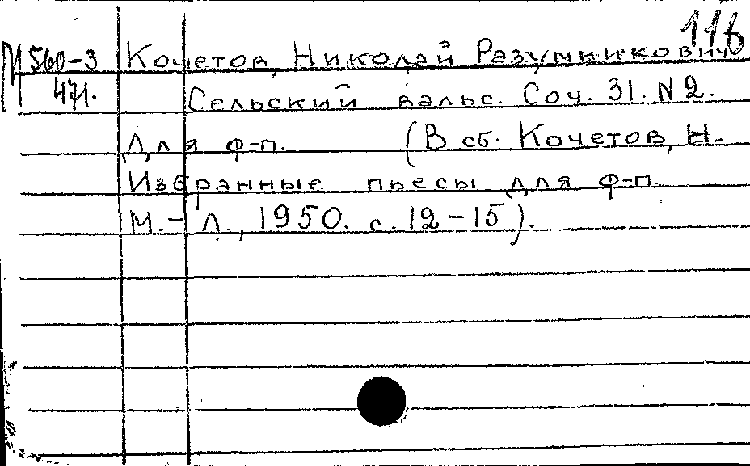 116
М 560-3 Кочетов, Николай Разумникович
471. Сельский вальс. Соч. 31. N 2.
Для ф-п. (В сб. Кочетов, Н.
Избранные пьесы для ф-п.
М. - Л., 1950. с. 12-15).